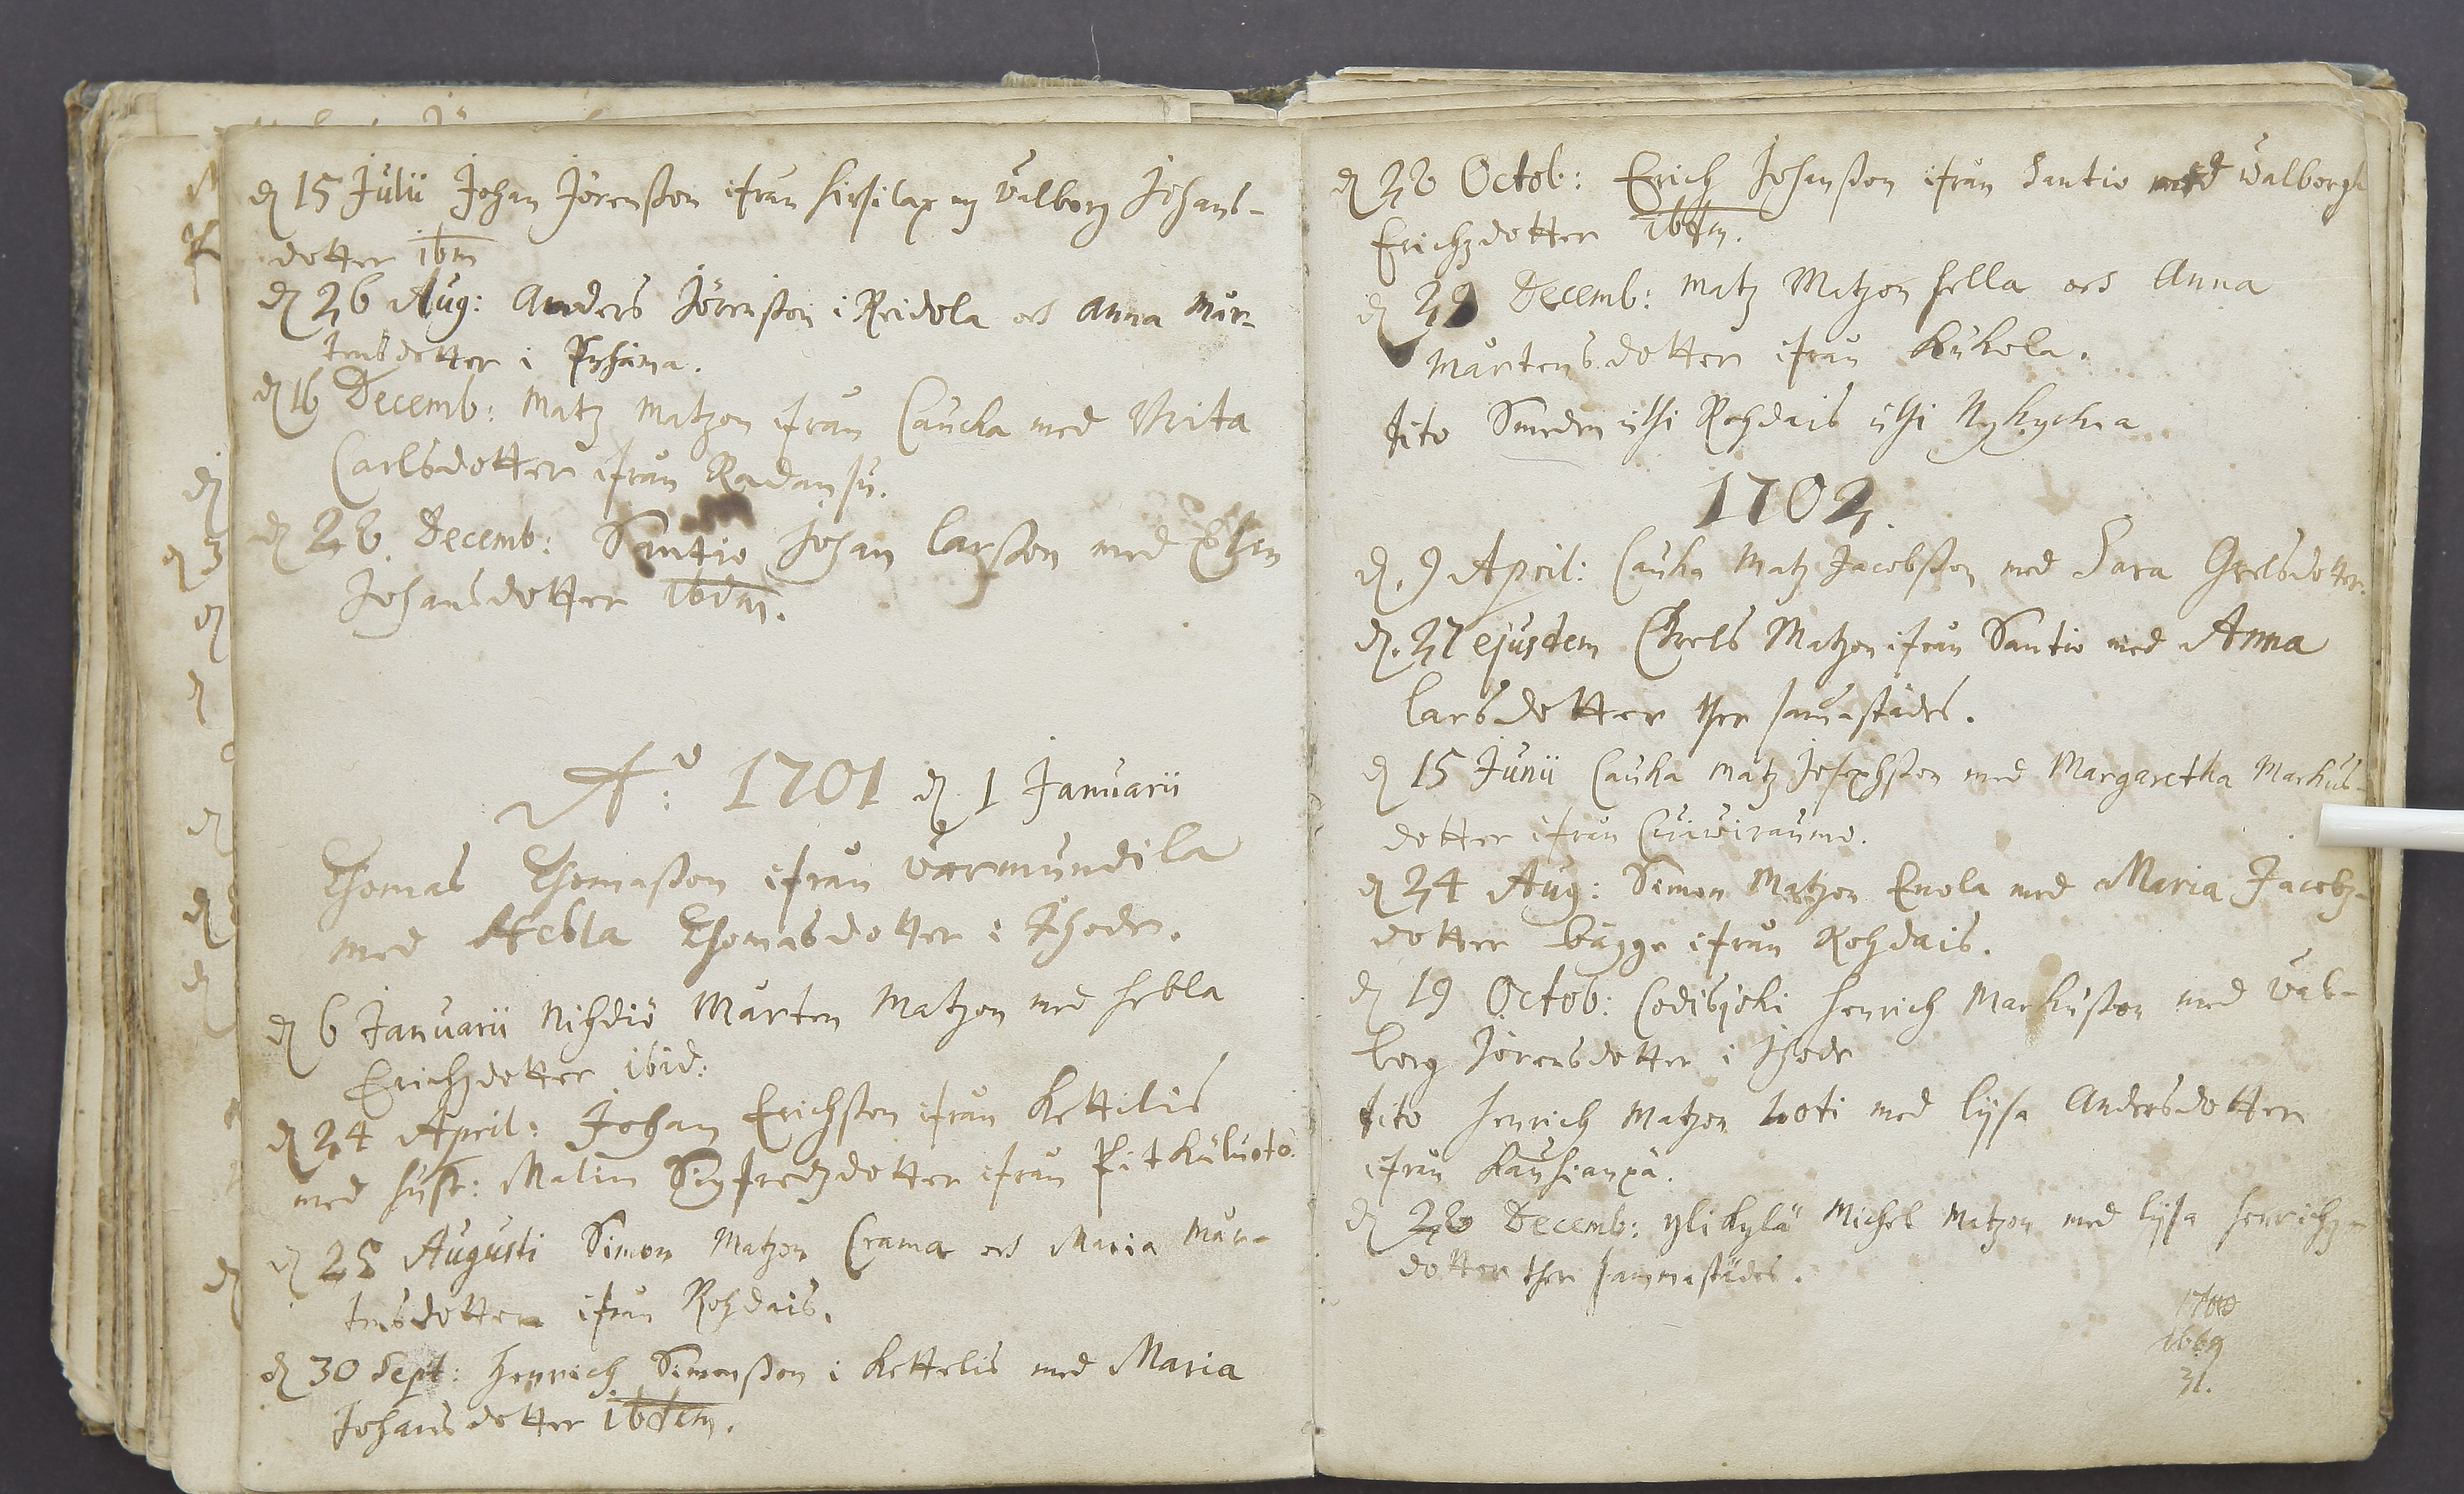 d 15 Julii Johan Jörensson ifrån Hirsilax m Valborg Johans-
dotter ibm
d 26 Aug: Anders Jörensson i Reidola och Anna Mår-
tensdotter i Pyhäma.
d 16 Decemb: Matz Matzon ifrån Caucka med Brita
Carlsdotter ifrån Radansu.
d 26 Decemb: Santio Johan Larsson med Elin
Johansdotter ibdm.
Ao: 1701 d. 1 Januarii
Thomas Thomasson ifrån Varmundila
med Hebla Thomasdotter i Thode.
d 6 Januarii Nihdiö Mårten Matzon med Hebla
Erichzdotter ibid:
d 24 April: Johan Erichsson ifrån Kettelis
med hust: Malin Sigfredzdotter ifrån Pitkäluoto
d 25 Augusti Simon Matzon Crama och Maria Mår-
tensdotter ifrån Rohdais.
d 30 Sept: Henrich Simonsson i Kettelis med Maria
Johansdotter ibdem.
d 26 Octob: Erich Johansson ifrån Santio med Valborgh
Erichzdotter ibdm.
d 29 Decemb: Matz Matzon Hella och Anna
Mårtensdotter ifrån Kukola.
dito Smeden uthi Rohdais uthi Nykyrkia
1702.
d. 9 April: Cauka Matz Jacobsson med Sara Grelsdotter.
d. 27 ejusdem Grels Matzon ifrån Santio med Anna
Larsdotter ther sammastädes.
d 15 Junii Cauka Matz Josephsson med Margaretha Markus-
dotter ifrån Cuiwirauma.
d 24 Aug: Simon Matzon Enola med Maria Jacobz-
dotter bägge ifrån Rohdais.
d 19 Octob: Codisjoki Henrich Markusson med Val-
borg Jörensdotter i Thode
dito Henrich Matzon Loti med Lysa Andersdotter
ifrån Kauhianpä.
d 26 Decemb: Ylikylä Michel Matzon med Lysa Henrichz-
dotter ther sammastädes.
1700
1669
31.